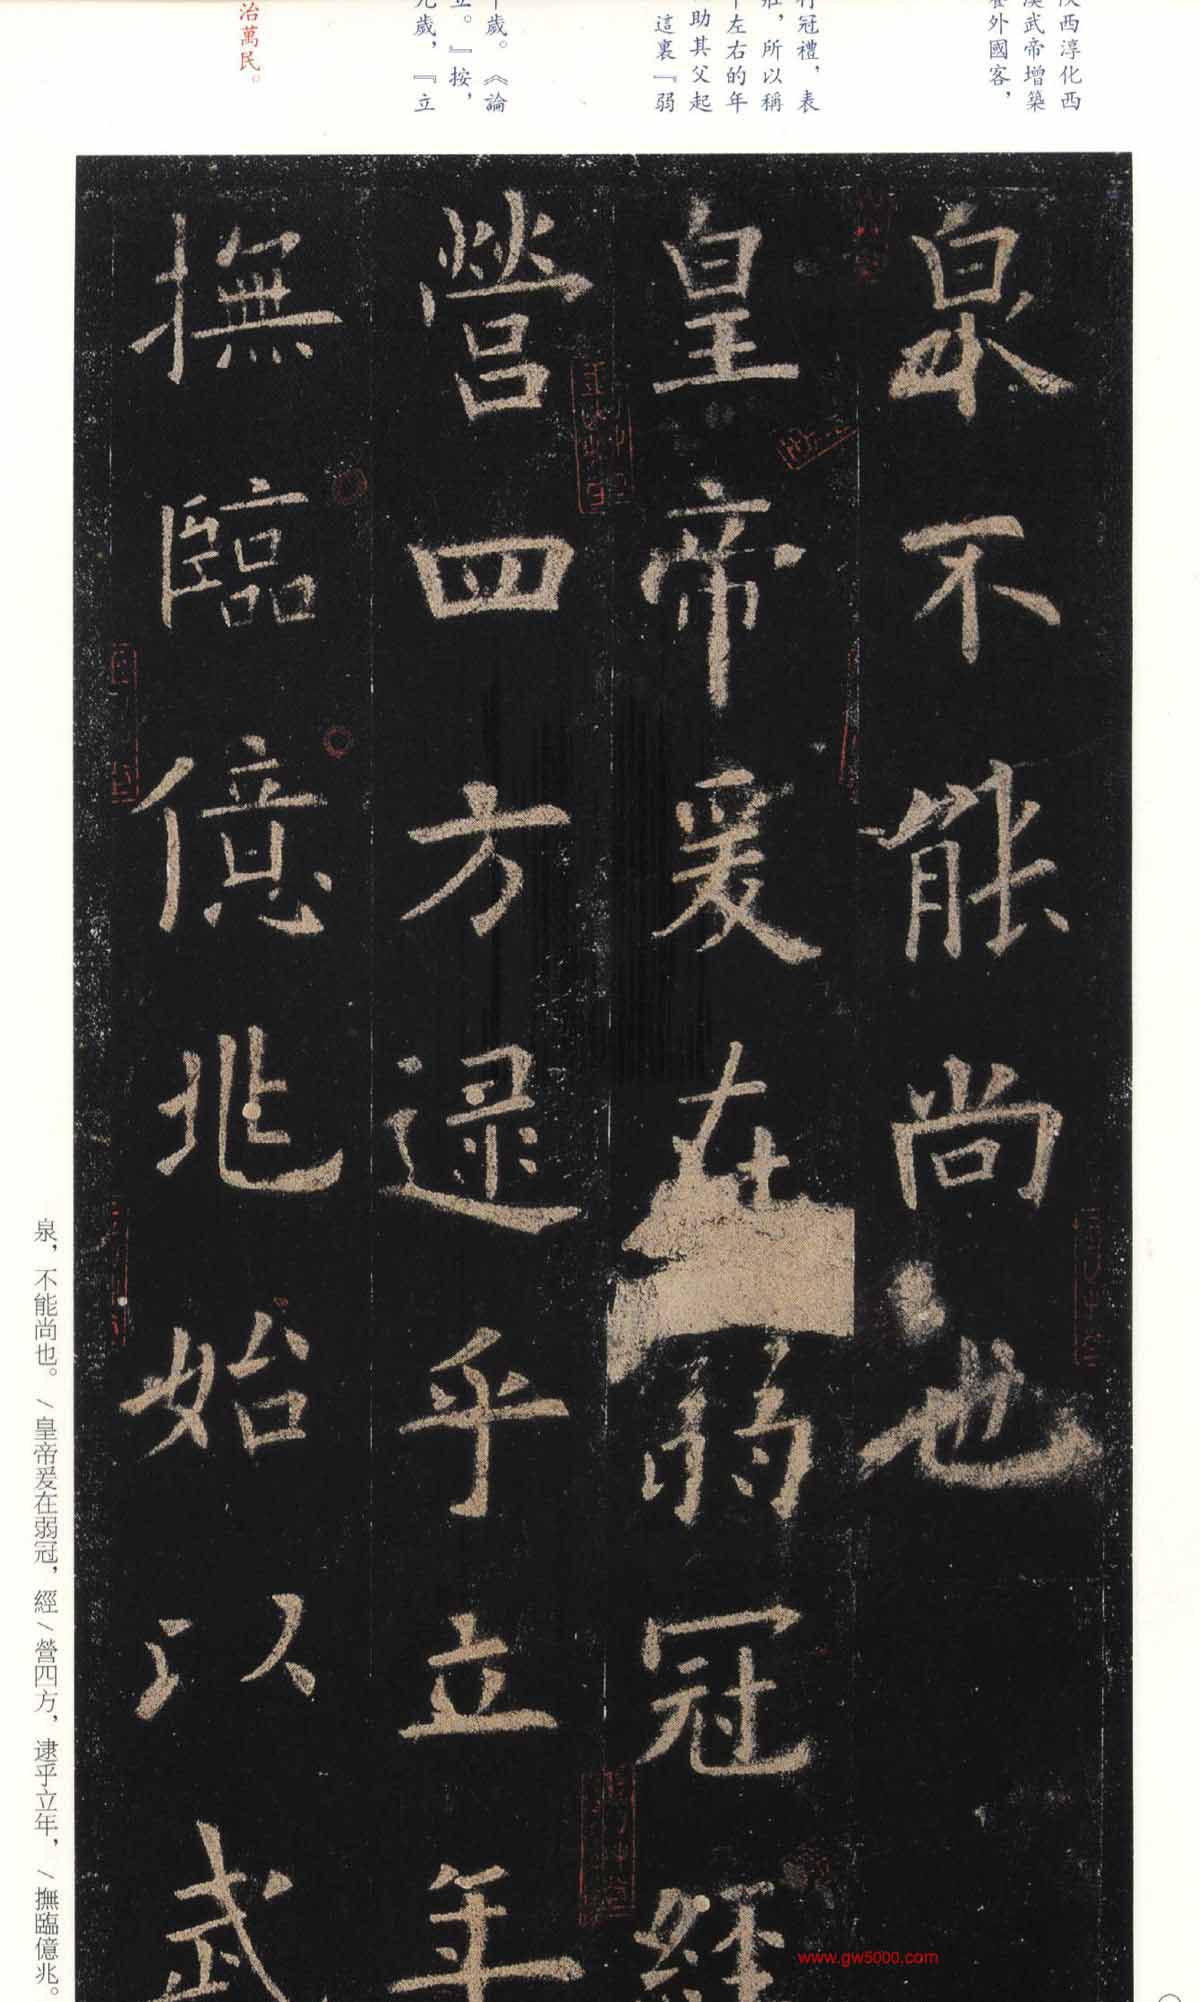 陝西淳化西
漢武帝增築
外國客，
行冠禮，表
壯，所以稱
十左右的年
助其父起
這裏『弱
十歲。《論
立。』按，
九歲，『立
治萬民。
泉不能尚也
皇帝爰在弱冠經
營四方逮乎立年
撫臨億兆始以武
泉，不能尚也。/皇帝爰在弱冠，經/營四方，逮乎立年，/撫臨億兆。
www.gw5000.com